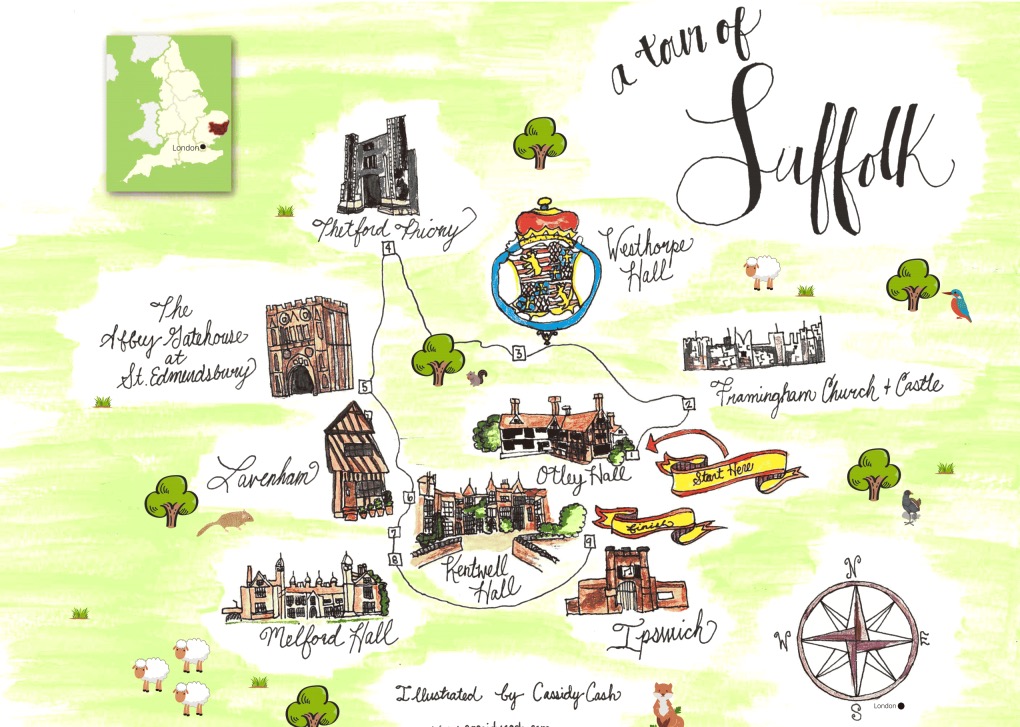 a tour of
Suffolk
London
Thetford Priory
4
Westhorpe
Hall
The
Abbey Gatehouse
at
St. Edmundsbury
5
3
2
Framingham Church + Castle
1
Otley Hall
Start Here
Lavenham
6
7
8
Kentwell
Hall
9
Finish
Melford Hall
Ipswich
N
W
E
S
London
Illustrated by Cassidy Cash